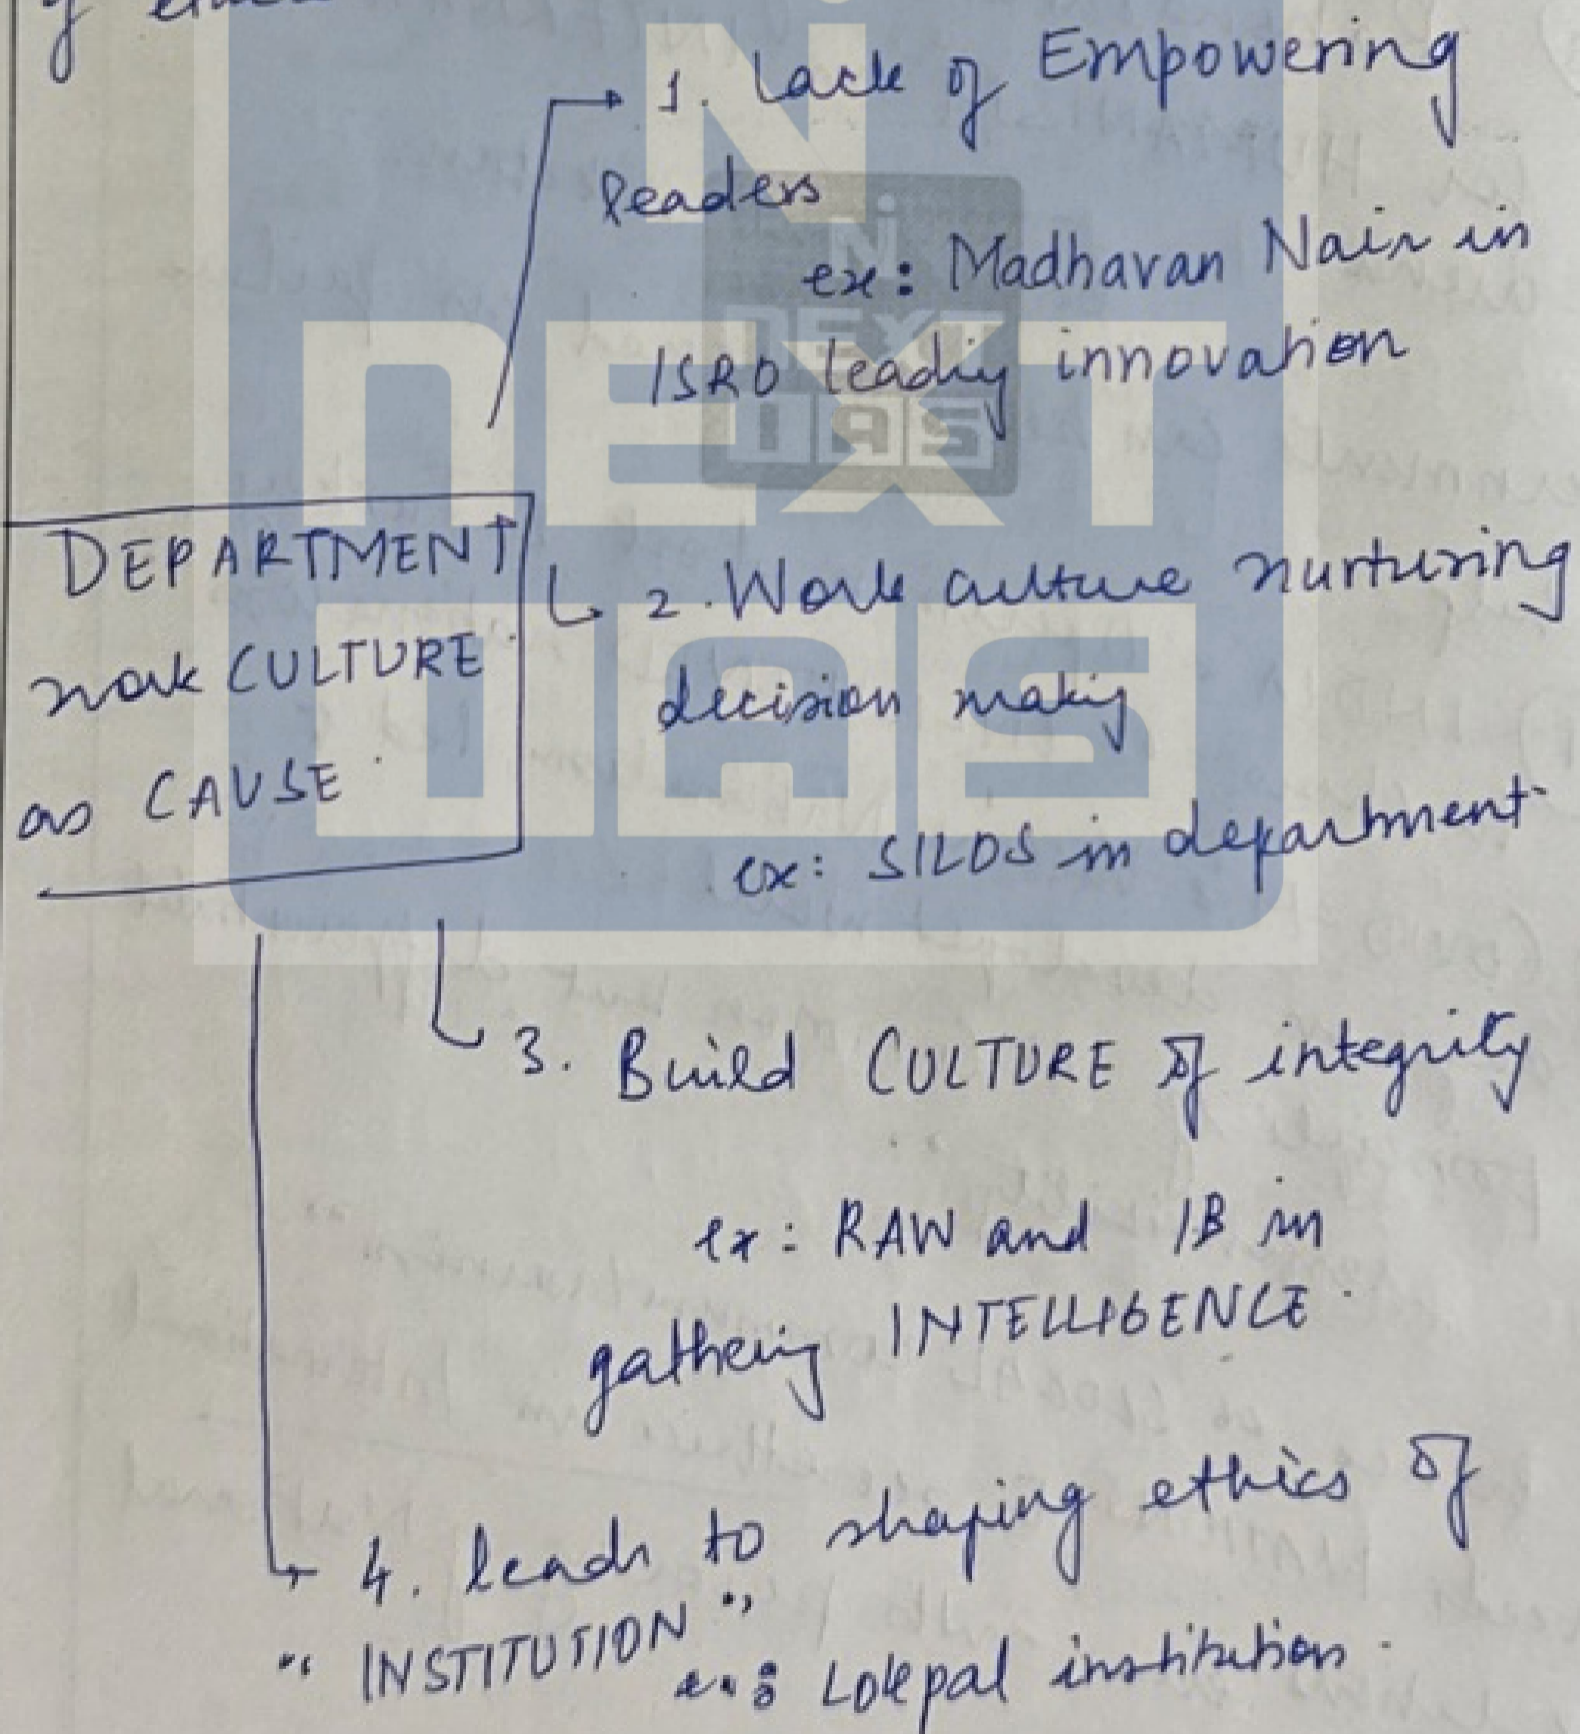 of
1. lack of Empowering
leaders
ex: Madhavan Nair in
ISRO leading innovation
DEPARTMENT
work CULTURE
as CAUSE
2. Work culture nurturing
decision making
ex: SILOS in department
3. Build CULTURE of integrity
ex: RAW and IB in
gathering INTELLIGENCE
4. leads to shaping ethics of
"INSTITUTION"
ex: Lokpal institution
NEXT
IAS
NEXT
IAS